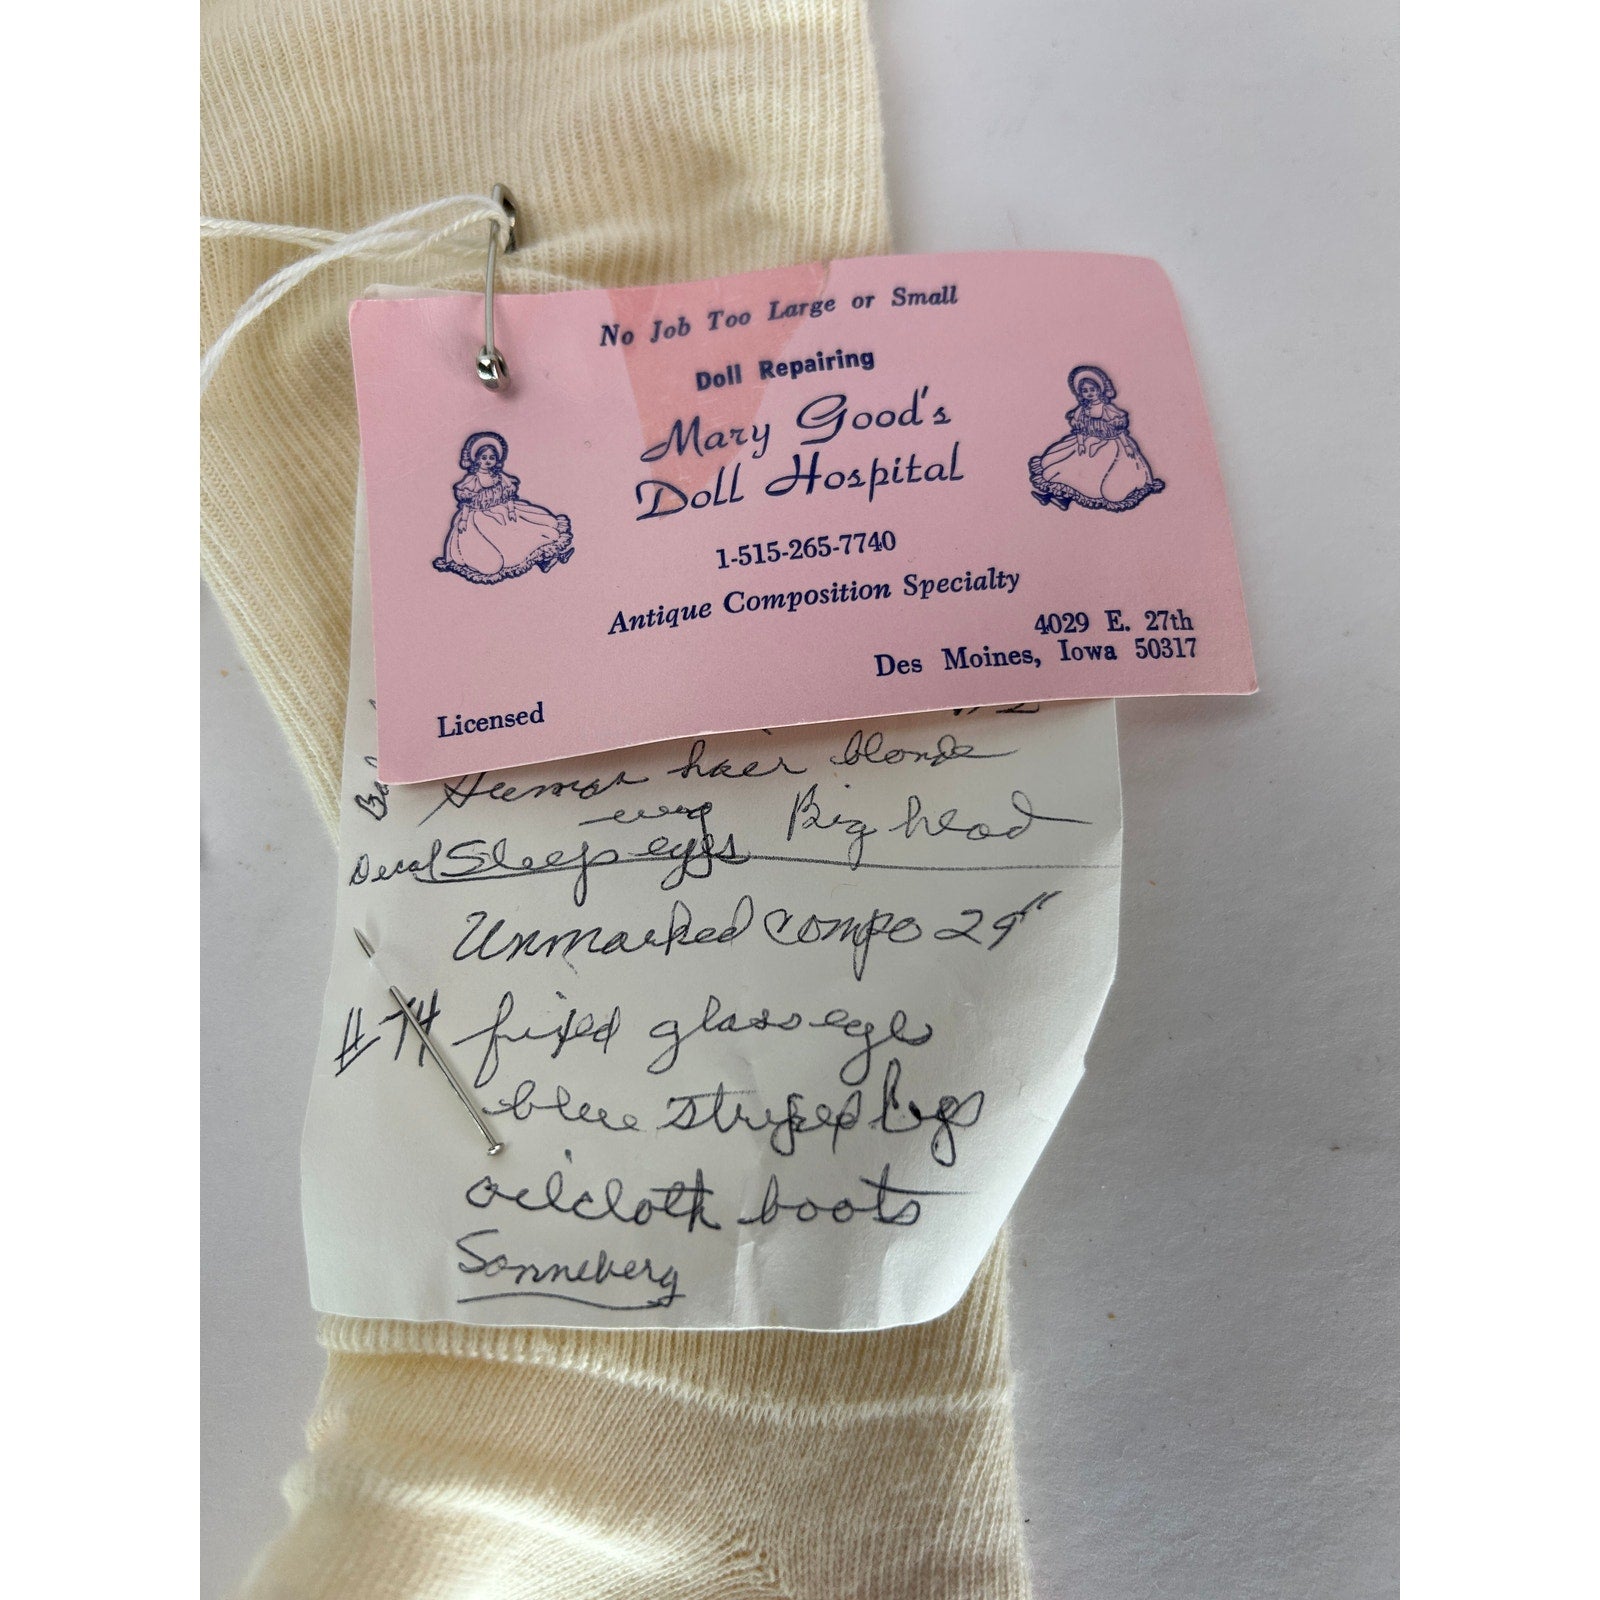 No Job Too Large or Small
Doll Repairing
Mary Good's
Doll Hospital
1-515-265-7740
Antique Composition Specialty
4029 E. 27th
Des Moines, Iowa 50317
Licensed
Human hair blonde
wig Big head
Decal Sleep eyes
Unmarked compo 29"
#74 fixed glass eyes
blue striped legs
oilcloth boots
Sonneberg